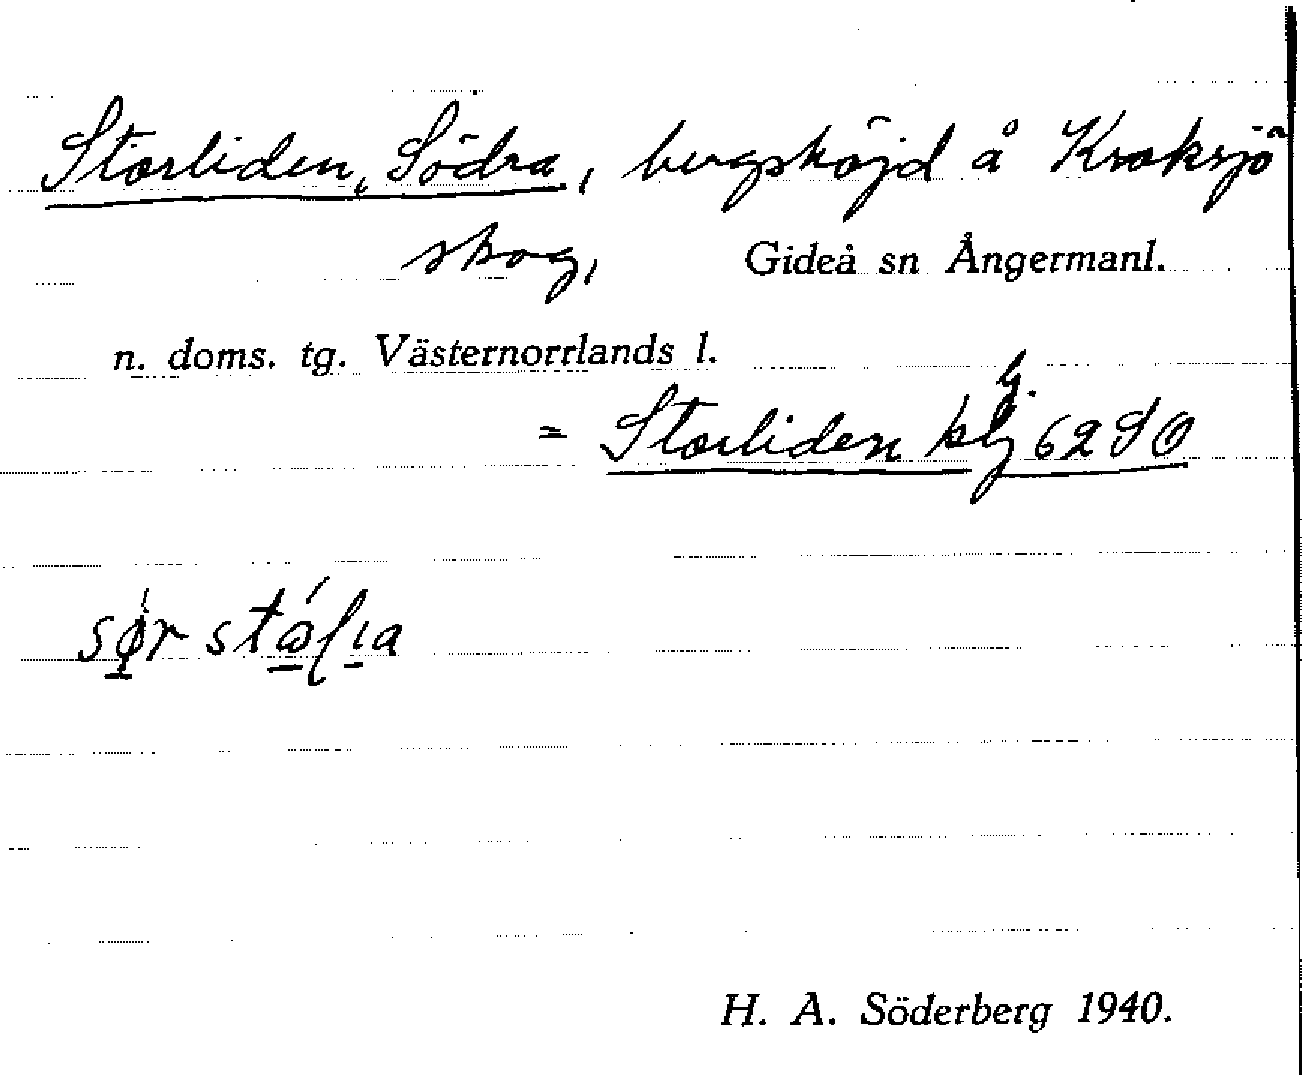 Storliden, Södra, bergshöjd å Kroksjö
skog, Gideå sn Ångermanl.
n. doms. tg. Västernorrlands l.
= Storliden
H. A. Söderberg 1940.